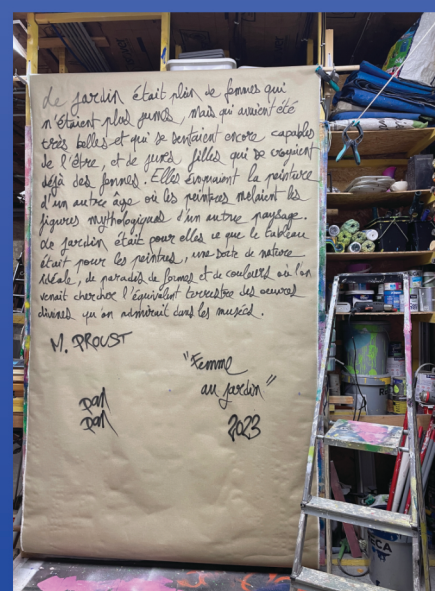 Le jardin était plein de femmes qui
n'étaient plus jeunes, mais qui avaient été
très belles et qui se sentaient encore capables
de l'être, et de jeunes filles qui se croyaient
déjà des femmes. Elles évoquaient la peinture
d'un autre âge où les peintres mêlaient les
figures mythologiques d'un autre paysage.
Le jardin était pour elles ce que le tableau
était pour les peintres, une sorte de nature
idéale, de paradis de formes et de couleurs où l'on
venait chercher l'équivalent terrestre des oeuvres
divines qu'on admirait dans les musées.
M. PROUST
"Femme
au jardin"
2023